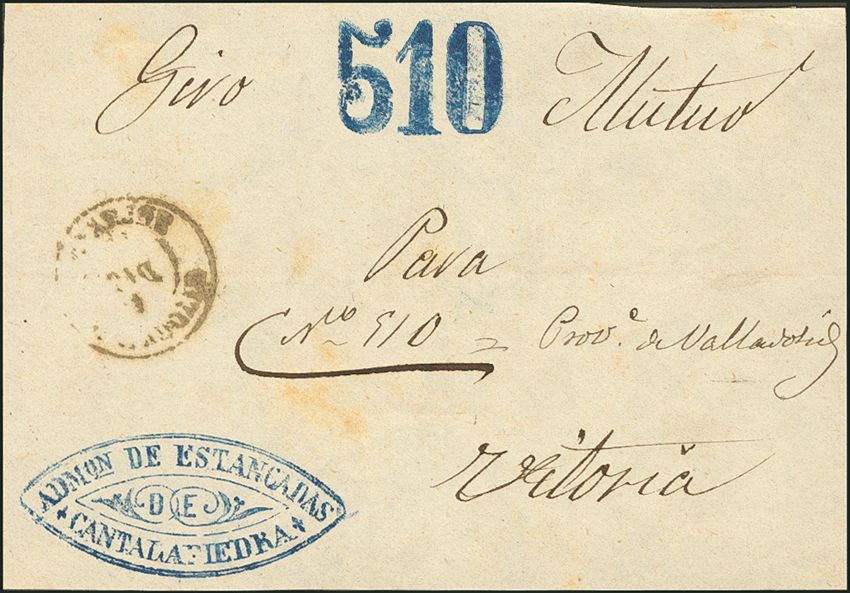 Giro 510 Mutuo
Para
Nº 510 = Prov.ª de Valladolid
Vitoria
DIC
ADMON DE ESTANCADAS
DE
CANTALAPIEDRA